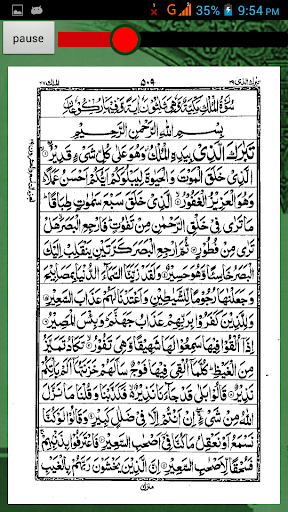 35% 9:54 PM
pause
تبرك الذی ۲۹
۵۰۹
الملك ۶۷
بِسْمِ اللهِ الرَّحْمٰنِ الرَّحِيْمِ
تَبٰرَكَ الَّذِىْ بِيَدِهِ الْمُلْكُ وَهُوَ عَلٰى كُلِّ شَىْءٍ قَدِيْرُ
الَّذِىْ خَلَقَ الْمَوْتَ وَالْحَيٰوةَ لِيَبْلُوَكُمْ اَيُّكُمْ اَحْسَنُ عَمَلًا
وَهُوَ الْعَزِيْزُ الْغَفُوْرُ الَّذِىْ خَلَقَ سَبْعَ سَمٰوٰتٍ طِبَاقًا
مَا تَرٰى فِىْ خَلْقِ الرَّحْمٰنِ مِنْ تَفٰوُتٍ فَارْجِعِ الْبَصَرَ هَلْ
تَرٰى مِنْ فُطُوْرٍ ثُمَّ ارْجِعِ الْبَصَرَ كَرَّتَيْنِ يَنْقَلِبْ اِلَيْكَ
الْبَصَرُ خَاسِئًا وَّهُوَ حَسِيْرٌ وَلَقَدْ زَيَّنَّا السَّمَآءَ الدُّنْيَا بِمَصَابِيْحَ
وَجَعَلْنٰهَا رُجُوْمًا لِّلشَّيٰطِيْنِ وَاَعْتَدْنَا لَهُمْ عَذَابَ السَّعِيْرِ
وَلِلَّذِيْنَ كَفَرُوْا بِرَبِّهِمْ عَذَابُ جَهَنَّمَ وَبِئْسَ الْمَصِيْرُ
اِذَآ اُلْقُوْا فِيْهَا سَمِعُوْا لَهَا شَهِيْقًا وَّهِىَ تَفُوْرُ تَكَادُ تَمَيَّزُ
مِنَ الْغَيْظِ كُلَّمَآ اُلْقِىَ فِيْهَا فَوْجٌ سَاَلَهُمْ خَزَنَتُهَآ اَلَمْ يَاْتِكُمْ
نَذِيْرٌ قَالُوْا بَلٰى قَدْ جَآءَنَا نَذِيْرٌ فَكَذَّبْنَا وَقُلْنَا مَا نَزَّلَ
اللهُ مِنْ شَىْءٍ اِنْ اَنْتُمْ اِلَّا فِىْ ضَلٰلٍ كَبِيْرٍ وَقَالُوْا لَوْ كُنَّا
نَسْمَعُ اَوْ نَعْقِلُ مَا كُنَّا فِىْ اَصْحٰبِ السَّعِيْرِ فَاعْتَرَفُوْا بِذَنْۢبِهِمْ
فَسُحْقًا لِّاَصْحٰبِ السَّعِيْرِ اِنَّ الَّذِيْنَ يَخْشَوْنَ رَبَّهُمْ بِالْغَيْبِ